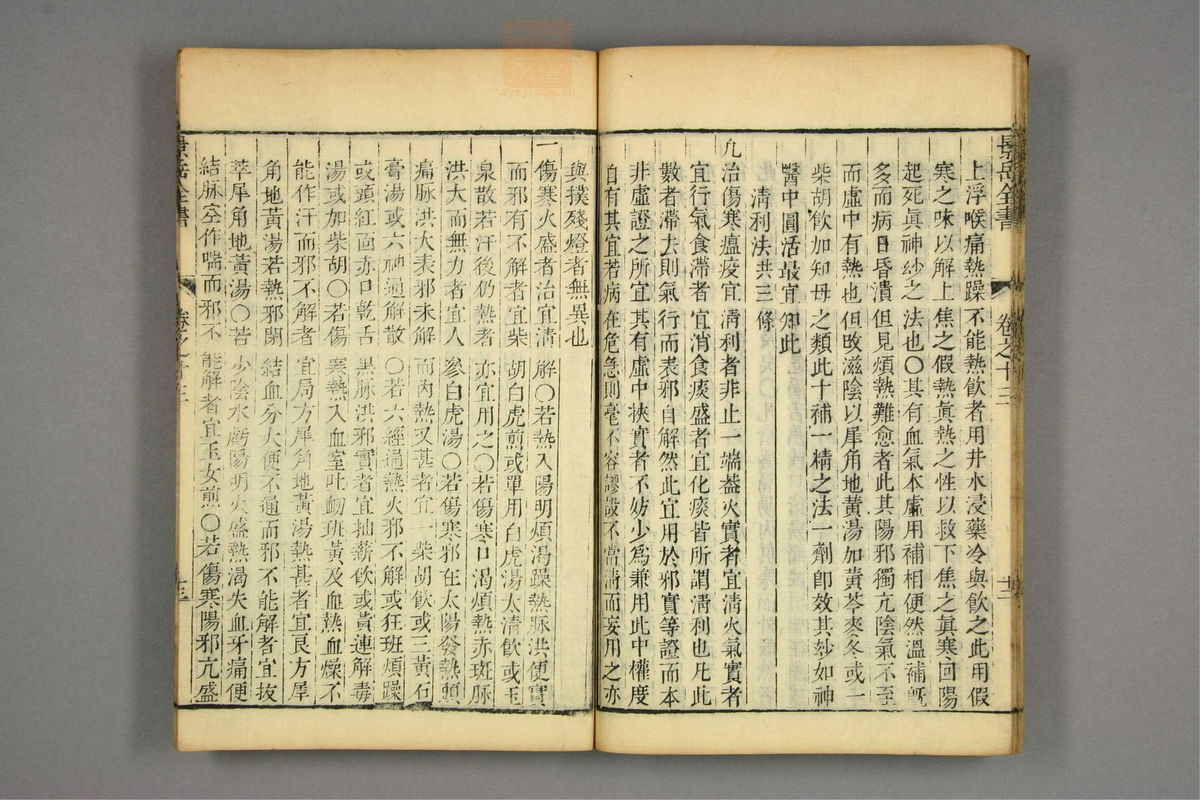 景岳全書
卷之十三
上浮喉痛熱躁不能熱飲者用井水浸藥冷與飲之此用假
寒之味以解上焦之假熱眞熱之性以救下焦之眞寒回陽
起死眞神紗之法也〇其有血氣本虛用補相便然溫補旣
多而病日昏潰但見煩熱難愈者此其陽邪獨亢陰氣不至
而虛中有熱也但改滋陰以犀角地黃湯加黃芩麥冬或一
柴胡飲加知母之類此十補一精之法一劑卽效其玅如神
醫中圓活最宜知此
清利法共三條
凢治傷寒瘟疫宜清利者非止一端葢火實者宜清火氣實者
宜行氣食滯者宜消食痰盛者宜化痰皆所謂清利也凡此
數者滯去則氣行而表邪自解然此宜用於邪實等證而本
非虛證之所宜其有虛中挾實者不妨少爲兼用此中權度
自有其宜若病在危急則毫不容謬設不當清而妄用之亦
與撲殘燈者無異也
一傷寒火盛者治宜清解〇若熱入陽明煩渴躁熱脈洪便實
而邪有不解者宜柴胡白虎煎或單用白虎湯太清飲或玉
泉散若汗後仍熱者亦宜用之〇若傷寒口渴煩熱赤斑脈
洪大而無力者宜人參白虎湯〇若傷寒邪在太陽發熱頭
痛脈洪大表邪未解而內熱又甚者宜一柴胡飲或三黃石
膏湯或六神通解散〇若六經通熱火邪不解或狂班煩躁
或頭紅面赤口乾舌黑脈洪邪實者宜抽薪飲或黃連解毒
湯或加柴胡〇若傷寒熱入血室吐衂班黃及血熱血燥不
能作汗而邪不解者宜局方犀角地黃湯熱甚者宜良方犀
角地黃湯若熱邪閉結血分大便不通而邪不能解者宜拔
萃犀角地黃湯〇若少陰水虧陽明火盛熱渴失血牙痛便
結脉空作喘而邪不能解者宜玉女煎〇若傷寒陽邪亢盛
景岳全書
卷之十三
十三